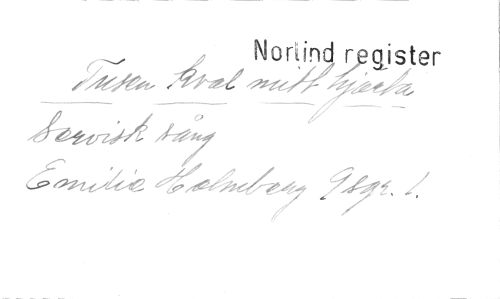 Norlind register
Tusen kval mitt hjärta
Servisk sång
Emilie Holmberg 9 sgr. 1.